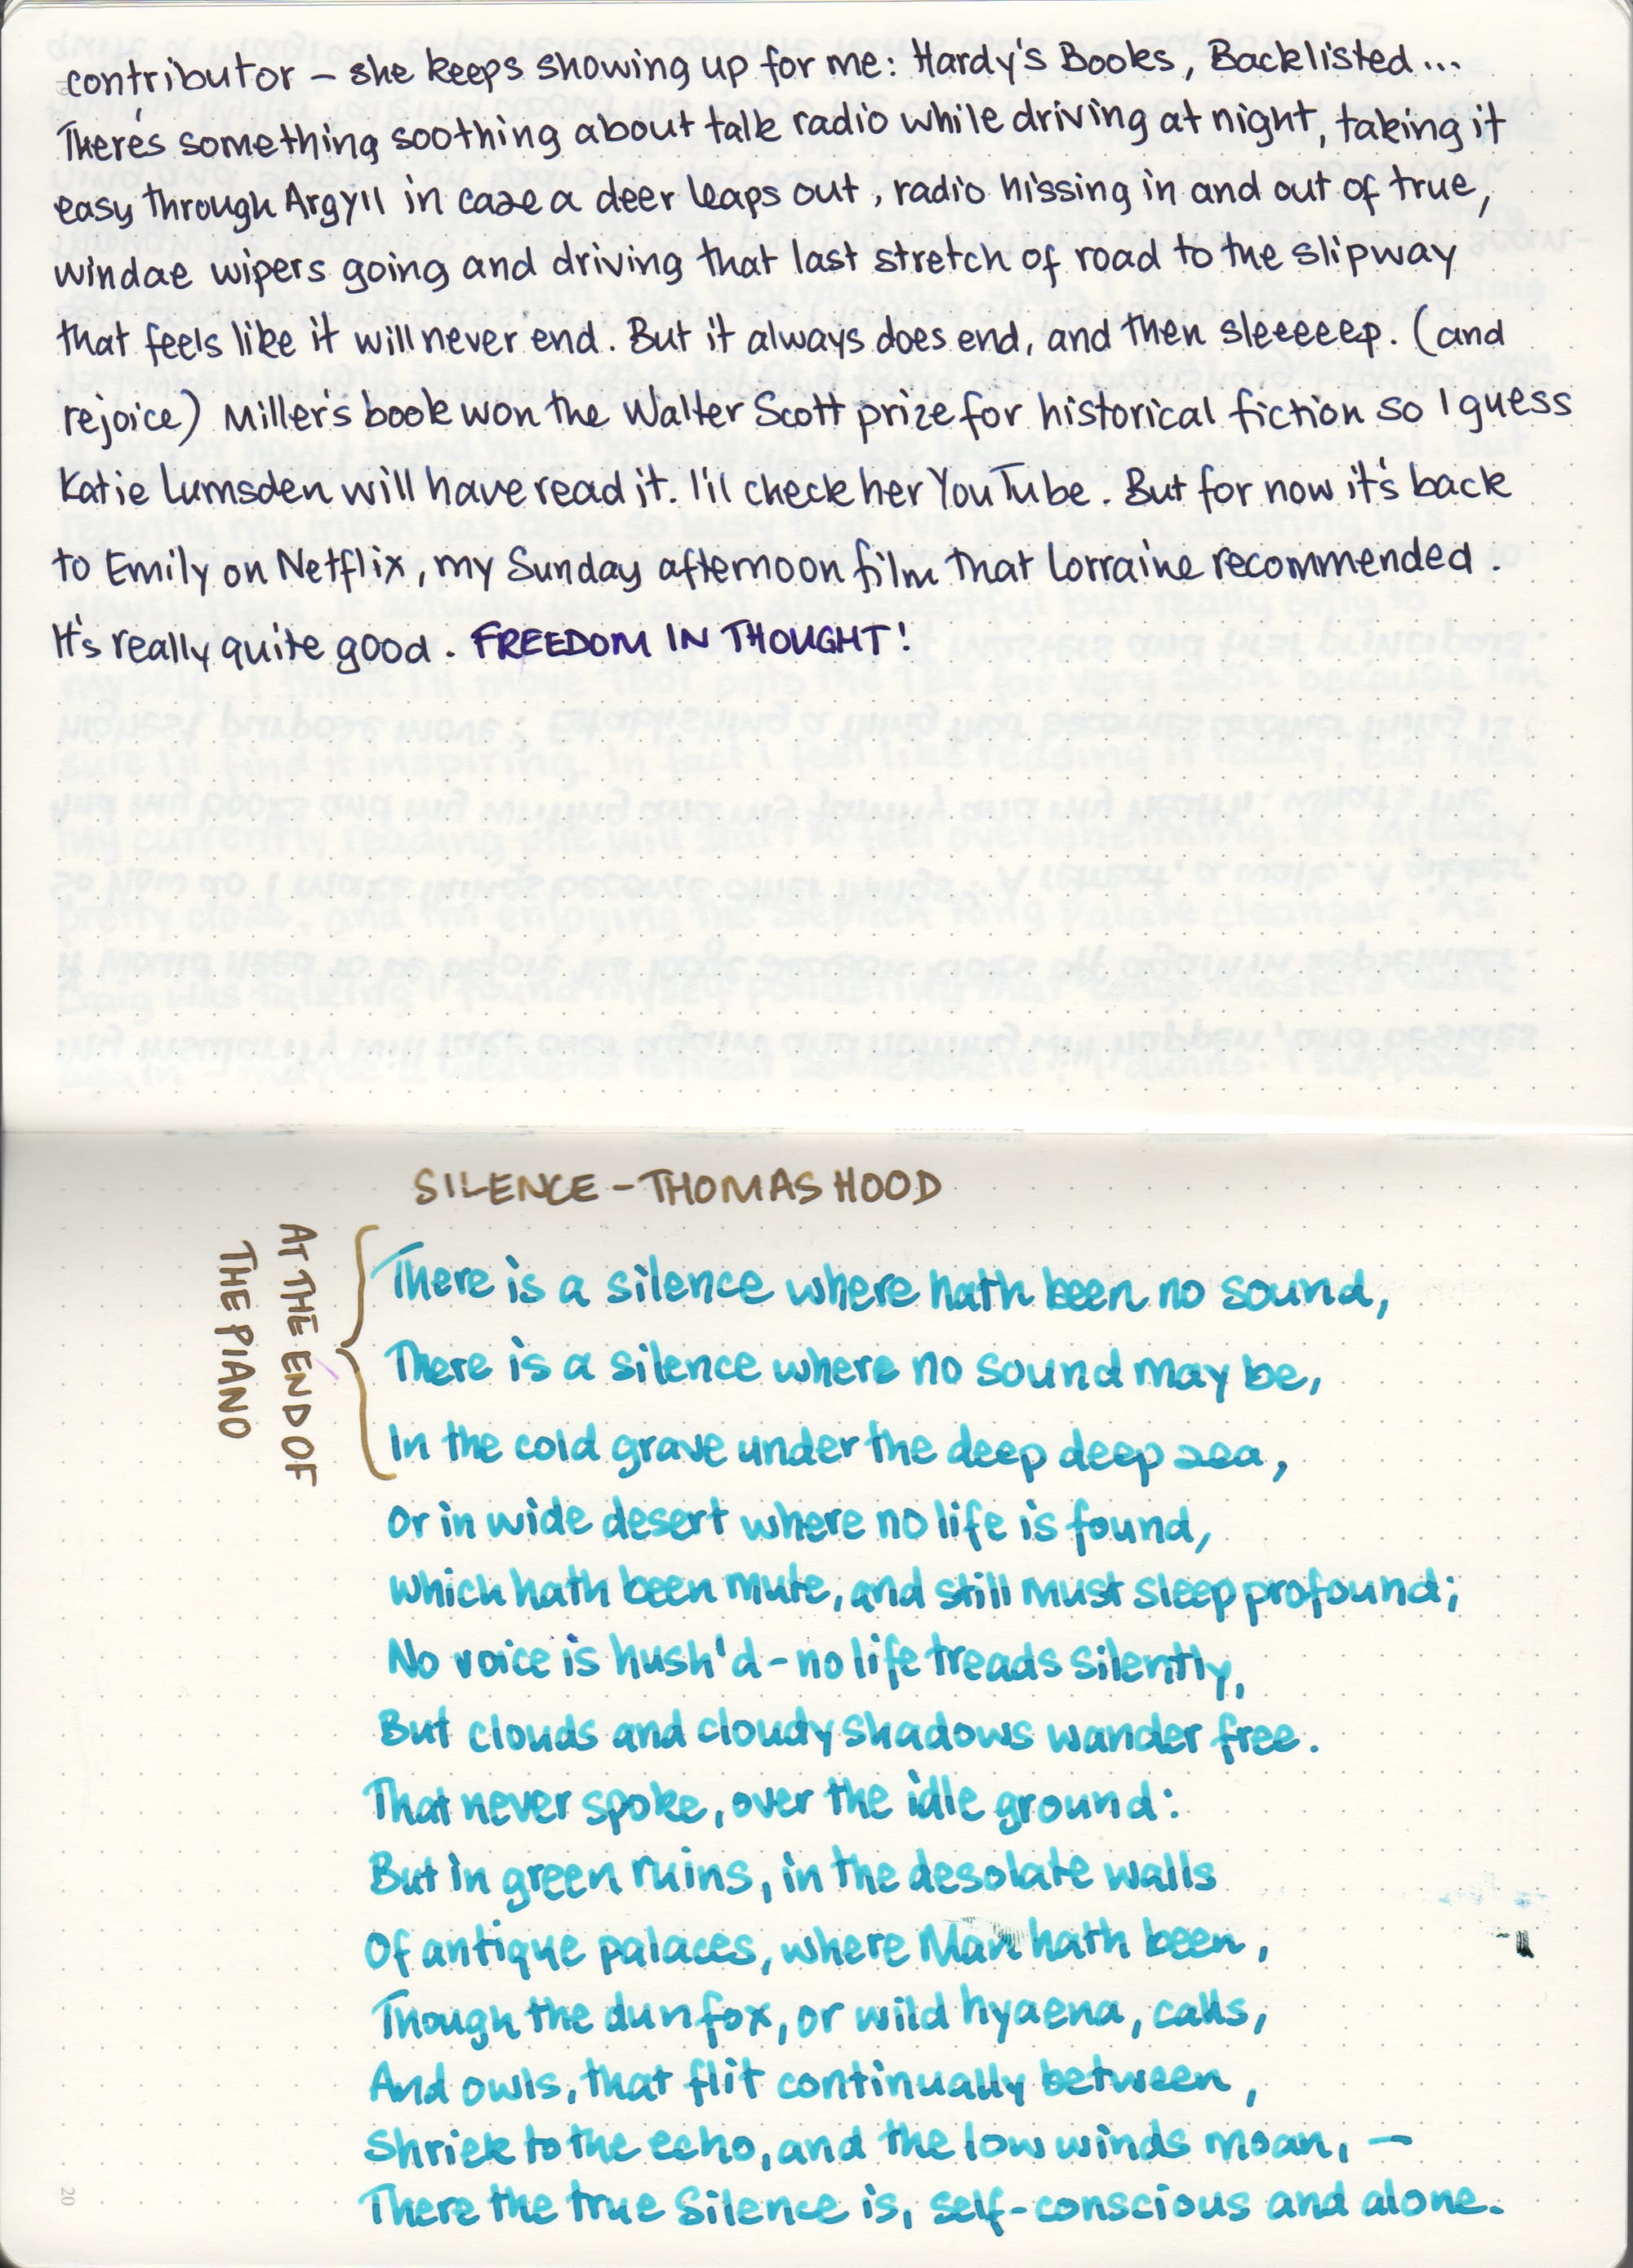 contributor – she keeps showing up for me: Hardy's Books, Backlisted...
There's something soothing about talk radio while driving at night, taking it
easy through Argyll in case a deer leaps out, radio hissing in and out of true,
windae wipers going and driving that last stretch of road to the slipway
that feels like it will never end. But it always does end, and then sleeeeep. (and
rejoice) Miller's book won the Walter Scott prize for historical fiction so I guess
Katie Lumsden will have read it. I'll check her YouTube. But for now it's back
to Emily on Netflix, my Sunday afternoon film that Lorraine recommended.
It's really quite good. FREEDOM IN THOUGHT!
SILENCE – THOMAS HOOD
AT THE END OF
THE PIANO
There is a silence where hath been no sound,
There is a silence where no sound may be,
In the cold grave under the deep deep sea,
Or in wide desert where no life is found,
Which hath been mute, and still must sleep profound;
No voice is hush'd – no life treads silently,
But clouds and cloudy shadows wander free.
That never spoke, over the idle ground:
But in green ruins, in the desolate walls
Of antique palaces, where Man hath been,
Though the dun fox, or wild hyaena, calls,
And owls, that flit continually between,
Shriek to the echo, and the low winds moan, —
There the true Silence is, self-conscious and alone.
20